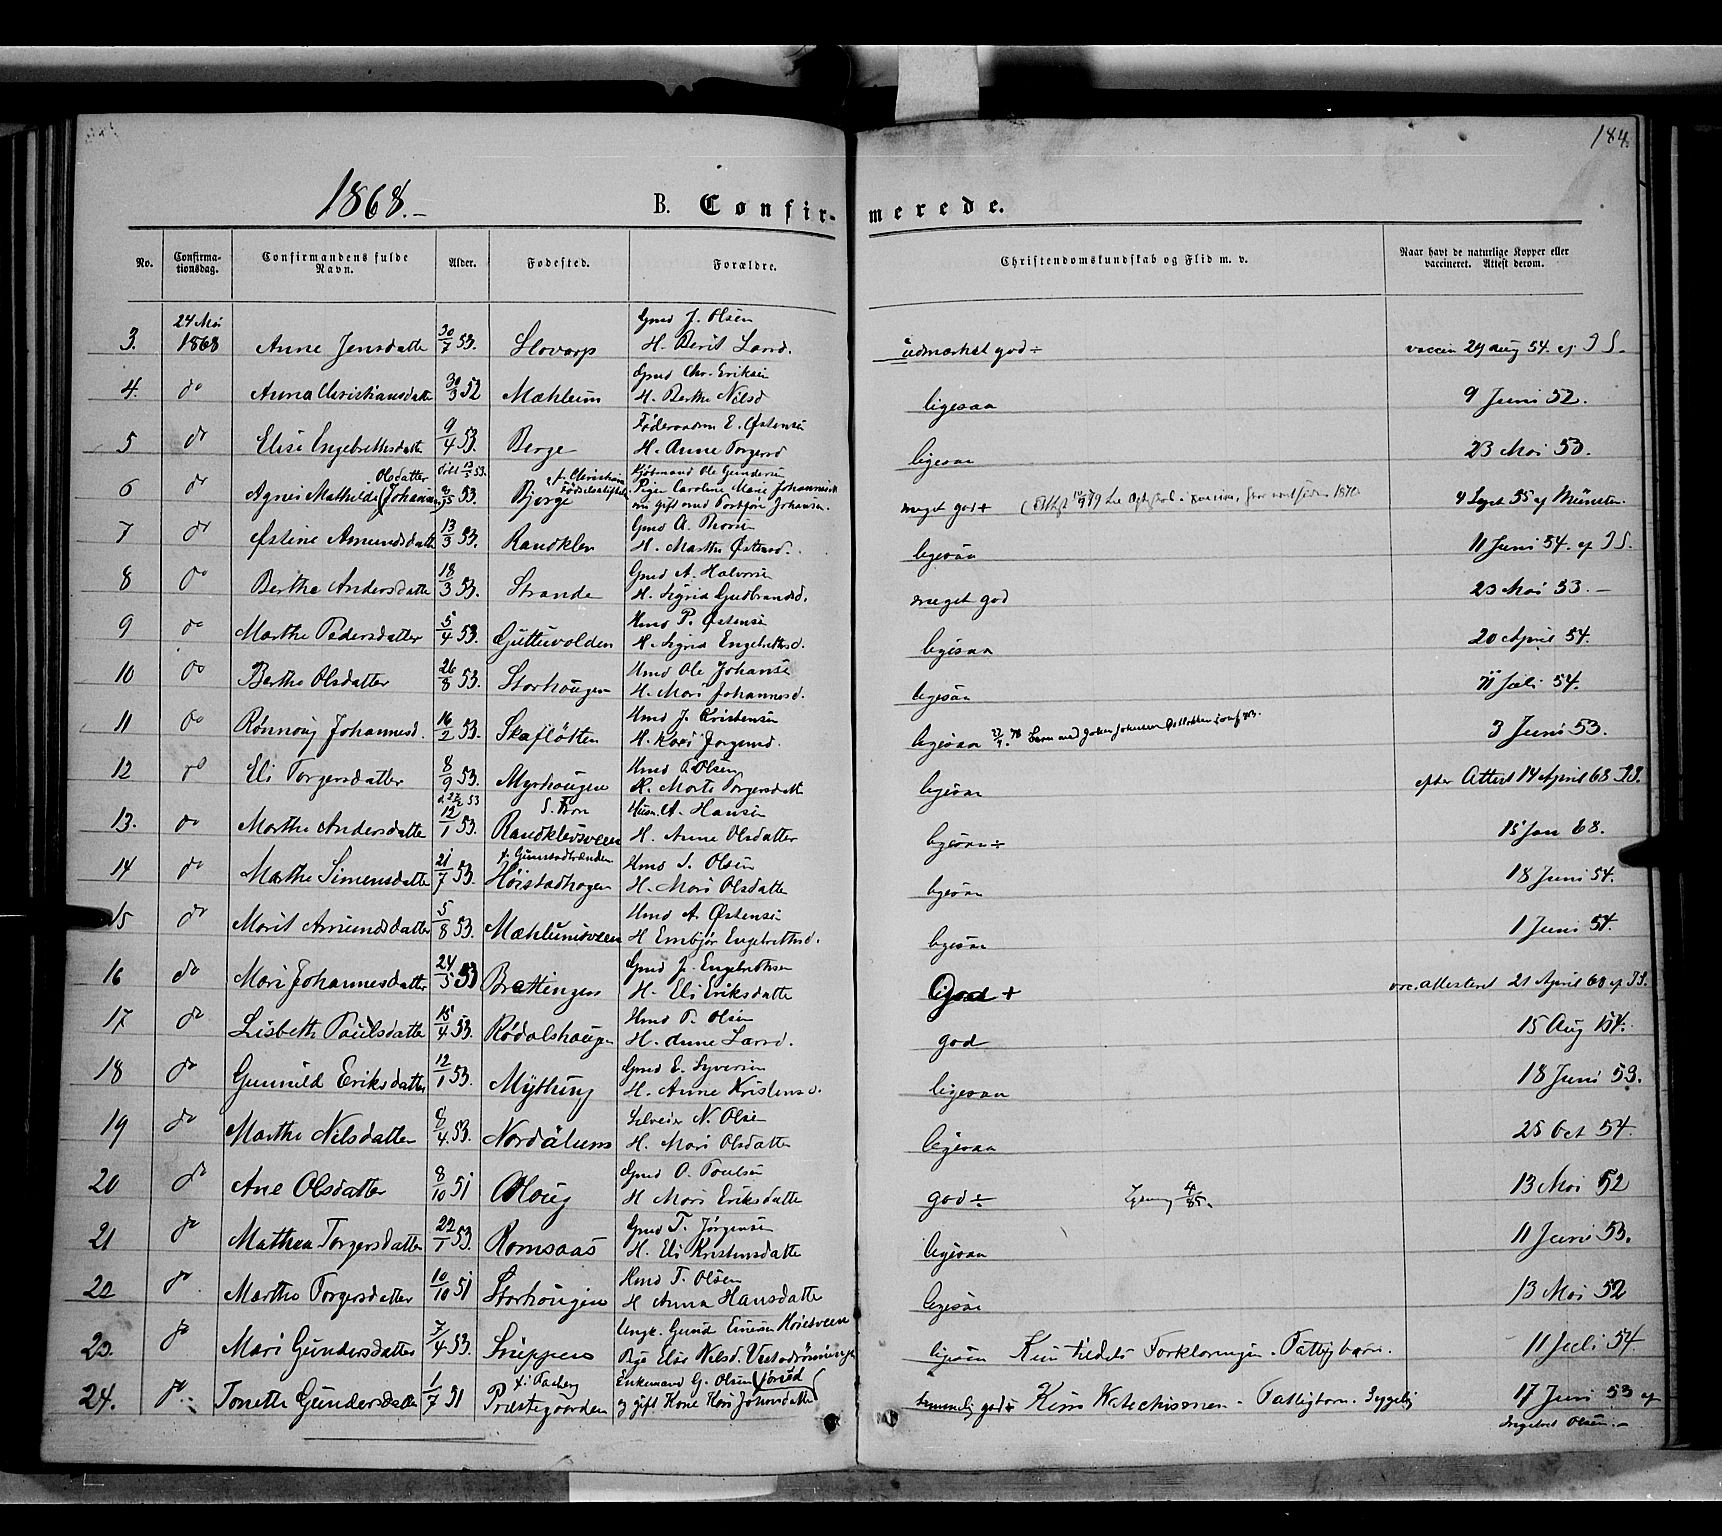 184.
1868.-
B. Confirmerede.
No. Confirmationsdag. Confirmandens fulde Navn. Alder. Fødested. Forældre. Christendomskundskab og Flid m. v. Naar havt de naturlige Kopper eller vaccineret. Attest derom.
24 Mai Gmd J. Olsen
3. 1868 Anne Jensdatte 30/7 53. Slovarp H. Berit Larsd. udmærket god ÷ vaccin 29 Aug 54. af J S.
Gmd Chr. Eriksen
4. do Anna Christiansdatte 30/3 52 Mæhlum H. Berthe Nilsd ligesaa 9 Juni 52.
Føderaadm E. Østensen
5 do Elise Engebrethsdatte 9/4 53. Berge H. Anne Torgersd ligesaa 23 Mai 53.
Olsdatter døbt 12/5 53. f. Christiania Fødselsstiftelse Kjøbmand Ole Gundersen
6 do Agnes Mathilde (Johannes 53. Bjerge Pigen Caroline Marie Johannesd meget god + 4 Sept 55 af Münster.
nu gift med Torbjørn Johansen.
Gmd A. Thorsen
7 do Østine Amundsdatte 13/3 53. Randklev H. Marthe Østensd. ligesaa 11 Juni 54. af J S.
Gmd A. Halvorsen
8 do Berthe Andersdatte 18/3 53. Strande H. Sigrid Gudbrandsd. meget god 23 Mai 53. -
Hmd P. Østensen
9 do Marthe Pedersdatter 5/4 53. Guttuvolden H. Sigrid Engebrethsd. ligesaa 20 April 54.
Hmd Ole Johanse
10 do Berthe Olsdatter 26/8 53. Storhougen H. Mari Johannesd. ligesaa 11 Juli 54.
Hmd J. Cristensen
11 do Rønnoug Johannesd. 16/2 53. Skafløtten H. Kari Jørgensd. ligesaa 3 Juni 53.
Hmd T. Olsen
12 do Eli Torgersdatter 8/9 53. Myrhougen H. Marte Torgersdatte ligesaa efter Attest 14 April 68 J S.
S. Fron Husm. A. Hansen
13. do Marthe Andersdatter 12/1 53. Randklevsveen H. Anne Olsdatter ligesaa ÷ 15 Jan 68.
f. Gunstadbrænden Hmd S. Olsen
14 do Marthe Simensdatter 21/7 53. Høistadhagen H. Mari Olsdatte ligesaa 18 Juni 54.
Hmd A. Østensen
15 do Marit Amundsdatter 5/8 53. Mæhlumsveen H Embjør Engebrethsd. ligesaa 1 Juni 54.
Gmd J. Engebrethsen
16 do Mari Johannesdatter 24/5 53 Brattingen H. Eli Eriksdatte God + vac. attesteret 21 April 68 af J S.
Hmd P. Olsen
17 do Lisbeth Paulsdatte 15/4 53. Rødalshaugen H. Anne Larsd. god 15 Aug 54.
Gmd E. Syversen
18 do Gunnild Eriksdatter 12/1 53. Myttung H. Anne Kristensd. ligesaa 18 Juni 53.
Selveier N. Olsen
19 do Marthe Nilsdatter 8/4 53. Nordålum H. Mari Olsdatte ligesaa 25 Oct 54.
Gmd O. Poulsen
20 do Ane Olsdatter 8/10 51 Oloug H Mari Eriksdatte god ÷ 13 Mai 52
Gmd T. Jørgensen
21 do Mathea Torgersdatter 22/1 53. Romsaas H. Eli Kristensdatte ligesaa 11 Juni 53.
Hmd T. Olsen
22 do Marthe Torgersdatter 10/10 51 Storhougen H Anna Hansdatte ligesaa 13 Mai 52
Ungk. Gunder Einersen Kosetveen
23. do Mari Gundersdatter 7/4 53. Snippen Pige Elise Nilsd. ligesaa Kun tildels Forklaringen. Fattigbarn. 11 Juli 54
f. i Faaberg Enkemand G. Olsen
24. do. Tonette Gundersdatte 1/7 51 Præstegaarden og gift Kone Kari Johansdatte temmelig god + Kun Katechismen - Fattigbarn. Sygelig 17 Juni 53 af
Olsen.-